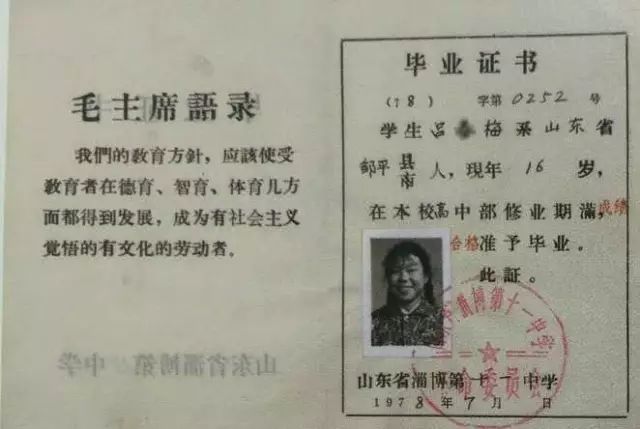 毛主席語录
我們的教育方針，应該使受
教育者在德育、智育、体育几方
面都得到发展，成为有社会主义
覚悟的有文化的劳动者。
山东省淄博第 中学
毕业证书
(78) 字第0252号
学生吕 梅系山东省
邹平县市人，現年16岁，
在本校高中部修业期滿，成绩
合格准予毕业。
此証。
山东省淄博第十一中学
1978年7月 日
淄博第十一中学
革命委员会